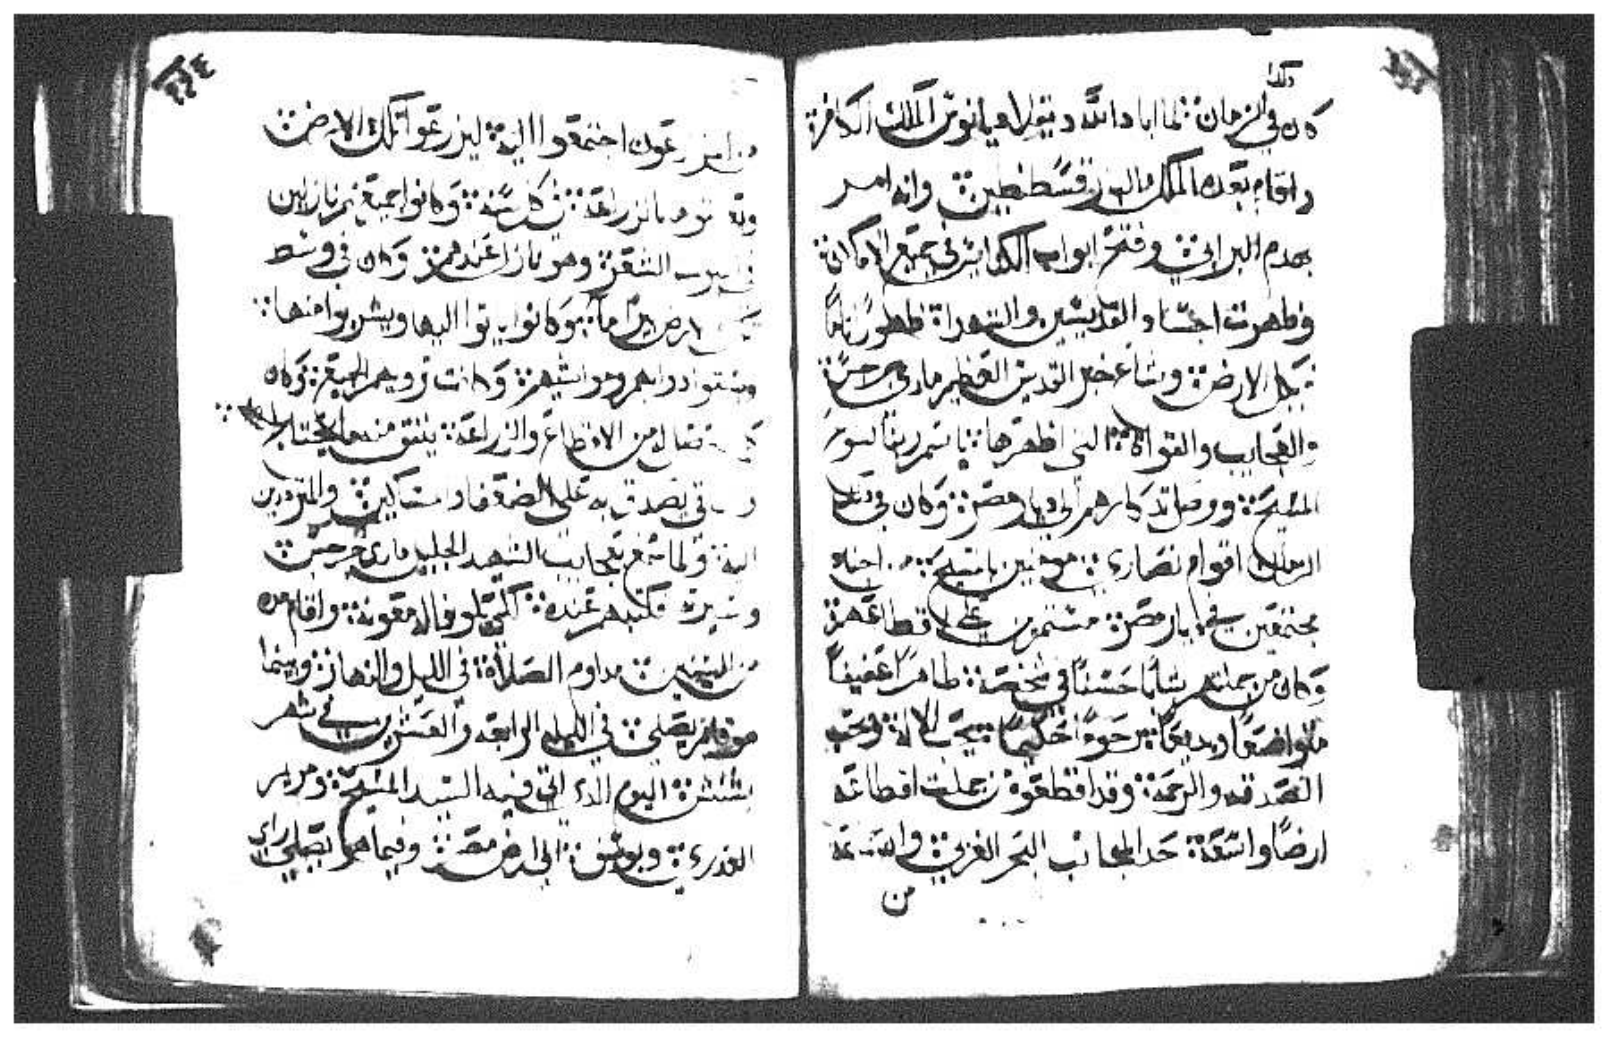 كان في الزمان لما اباد الله ديقلاديانوس الملك الكافر
ذلك
واقام بعده الملك البار قسطنطين وانه امر
بهدم البرابي وفتح ابواب الكنايس في جميع الاماكن
وظهرت اجساد القديسين والشهداء ظهورًا تامًا
بكل الارض وشاع خبر القديس العظيم ماري جرجس
والعجايب والقواة التي اظهرها باسم ربنا يسوع
المسيح ووصل تذكارهم الي ديار مصر وكان في ذلك
الزمان اقوام نصاري مومنين بالمسيح من
مجتمعين في ديار مصر مستمرين علي اقطاعهم
وكان من جملتهم شابًا حسنًا في شخصه طاهرًا عفيفًا
متواضعًا وديعًا رحومًا حكيمًا يحب الاله ويحب
الصدقه والرحمة وقد اقطعوه من جملت اقطاعه
ارضًا واسعة حدا لجانب البحر الغربي
من
٢٢٤
اجتمعوا اليه ليزرعوا تلك الارض
بالزراعة في كل سنة وكانوا جميعهم نازلين
في الشعر وهو نازل عندهم وكان في وسط
الارض بير ماء وكانوا ياتوا اليها ويشربوا منها
ويسقوا دوابهم ومواشيهم وكانت ترويهم الجميع وكان
من الاقطاع والزراعة ينفق منه ما يحتاج اليه
يصدق به علي الضعفا والمساكين والمترددين
اليه ولما سمع بعجايب الشهيد الجليل ماري جرجس
وسيرته كتبهم عنده لكي يكونوا له معونه واقام مده
من السنين مداوم الصلاة في الليل والنهار وبينما
هو قايم يصلي في الليله الرابعه والعشرين في شهر
بشنس اليوم الذي اتي فيه السيد المسيح ومريم
العذري ويوسف الي ارض مصر وفيما هو يصلي راي